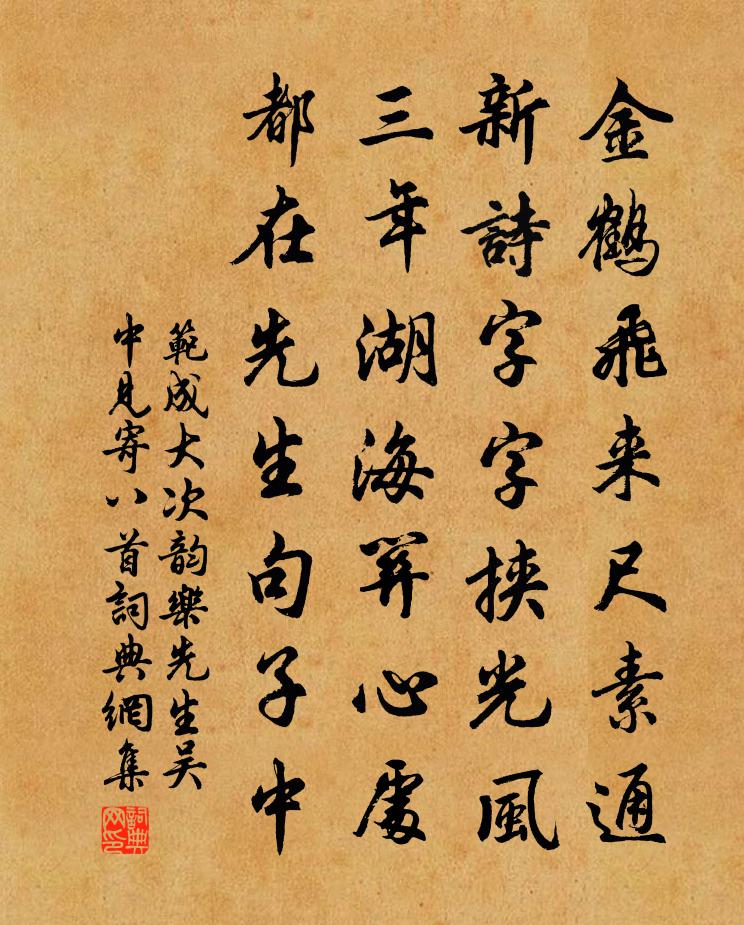 金鶴飛来尺素通
新詩字字挾光風
三年湖海關心處
都在先生句子中
範成大次韵樂先生吴
中見寄八首詞典網集
詞典
网印